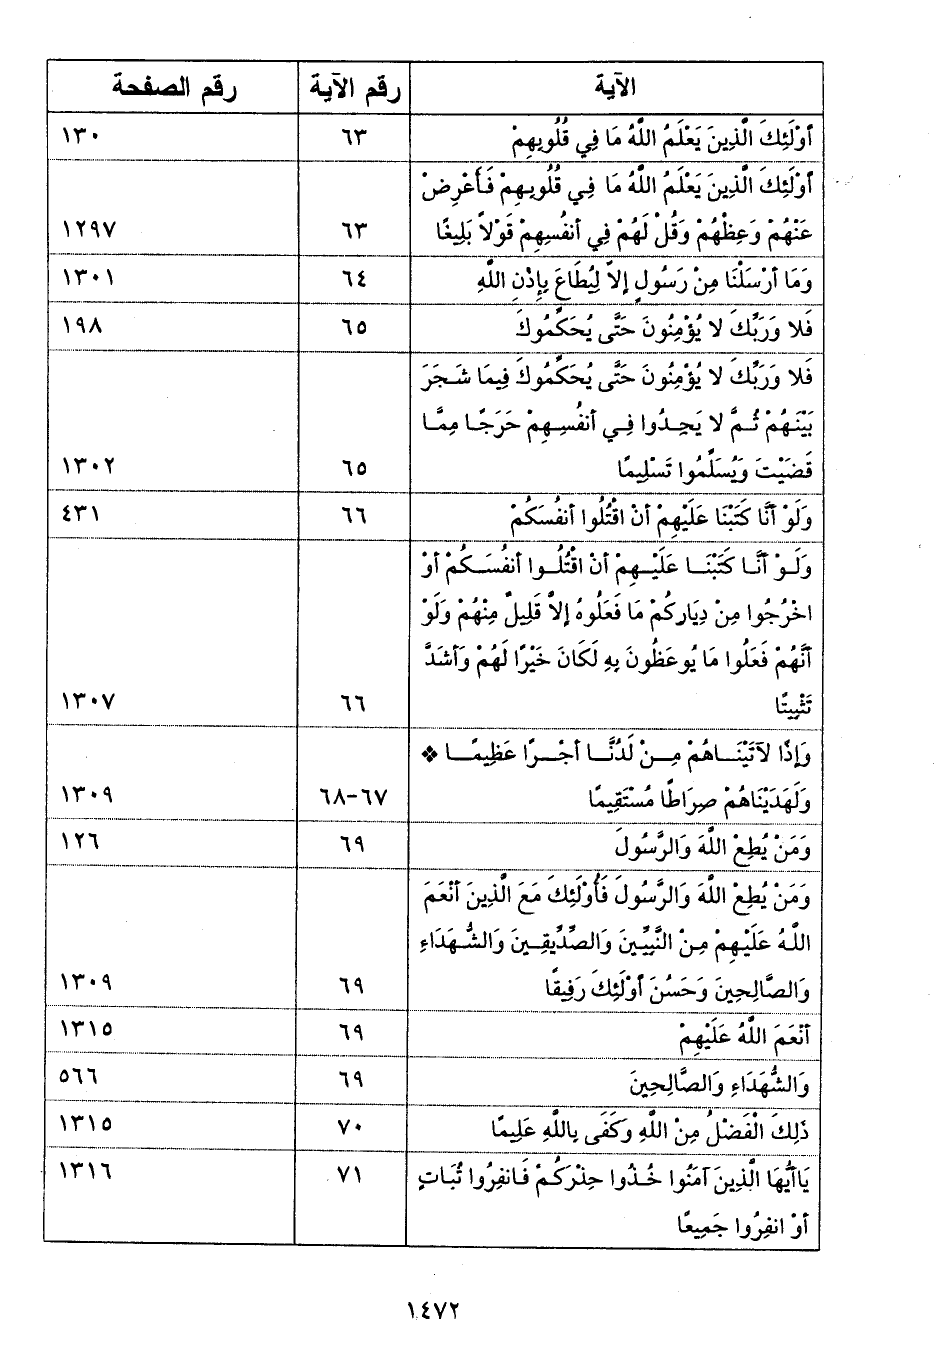 الآية رقم الآية رقم الصفحة
أوْلَئِكَ الَّذِينَ يَعْلَمُ اللَّهُ مَا فِي قُلُوبِهِمْ ٦٣ ١٣٠
أوْلَئِكَ الَّذِينَ يَعْلَمُ اللَّهُ مَا فِي قُلُوبِهِمْ فَأَعْرِضْ
عَنْهُمْ وَعِظْهُمْ وَقُلْ لَهُمْ فِي أنفُسِهِمْ قَوْلاً بَلِيغًا ٦٣ ١٢٩٧
وَمَا أرْسَلْنَا مِنْ رَسُولٍ إلاَّ لِيُطَاعَ بِإذْنِ اللَّهِ ٦٤ ١٣٠١
فَلا وَرَبِّكَ لا يُؤْمِنُونَ حَتَّى يُحَكِّمُوكَ ٦٥ ١٩٨
فَلا وَرَبِّكَ لا يُؤْمِنُونَ حَتَّى يُحَكِّمُوكَ فِيمَا شَجَرَ
بَيْنَهُمْ ثُمَّ لا يَجِدُوا فِي أنفُسِهِمْ حَرَجًا مِمَّا
قَضَيْتَ وَيُسَلِّمُوا تَسْلِيمًا ٦٥ ١٣٠٢
وَلَوْ أنَّا كَتَبْنَا عَلَيْهِمْ أنْ اقْتُلُوا أنفُسَكُمْ ٦٦ ٤٣١
وَلَوْ أنَّا كَتَبْنَا عَلَيْهِمْ أنْ اقْتُلُوا أنفُسَكُمْ أوْ
اخْرُجُوا مِنْ دِيَارِكُمْ مَا فَعَلُوهُ إلاَّ قَلِيلٌ مِنْهُمْ وَلَوْ
أنَّهُمْ فَعَلُوا مَا يُوعَظُونَ بِهِ لَكَانَ خَيْرًا لَهُمْ وَأشَدَّ
تَثْبِيتًا ٦٦ ١٣٠٧
وَإذًا لآتَيْنَاهُمْ مِنْ لَدُنَّا أجْرًا عَظِيمًا ❖
وَلَهَدَيْنَاهُمْ صِرَاطًا مُسْتَقِيمًا ٦٧-٦٨ ١٣٠٩
وَمَنْ يُطِعْ اللَّهَ وَالرَّسُولَ ٦٩ ١٢٦
وَمَنْ يُطِعْ اللَّهَ وَالرَّسُولَ فَأُوْلَئِكَ مَعَ الَّذِينَ أنْعَمَ
اللَّهُ عَلَيْهِمْ مِنْ النَّبِيِّينَ وَالصِّدِّيقِينَ وَالشُّهَدَاءِ
وَالصَّالِحِينَ وَحَسُنَ أوْلَئِكَ رَفِيقًا ٦٩ ١٣٠٩
أنْعَمَ اللَّهُ عَلَيْهِمْ ٦٩ ١٣١٥
وَالشُّهَدَاءِ وَالصَّالِحِينَ ٦٩ ٥٦٦
ذَلِكَ الْفَضْلُ مِنْ اللَّهِ وَكَفَى بِاللَّهِ عَلِيمًا ٧٠ ١٣١٥
يَاأيُّهَا الَّذِينَ آمَنُوا خُذُوا حِذْرَكُمْ فَانفِرُوا ثُبَاتٍ ٧١ ١٣١٦
أوْ انفِرُوا جَمِيعًا
١٤٧٢